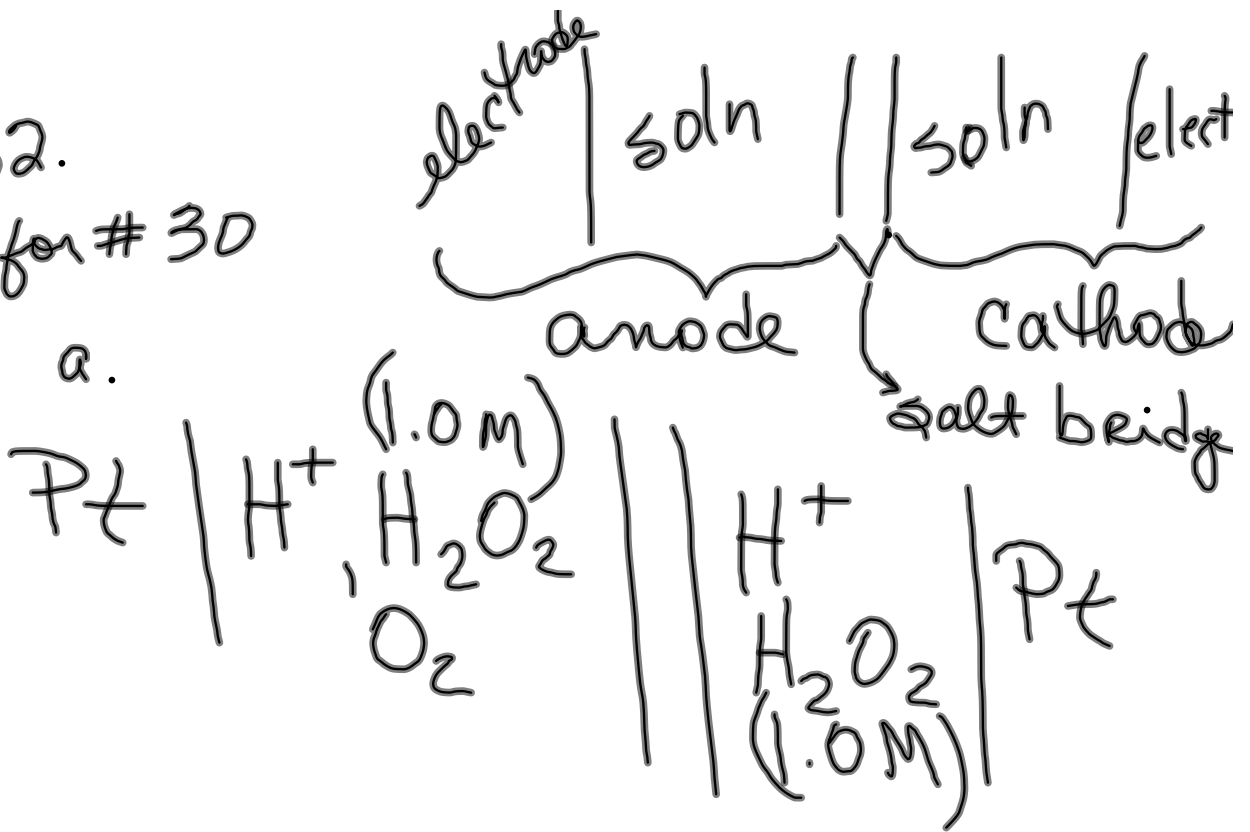 2.
for # 30
electrode | soln || soln | elect
anode
cathod
salt bridg
a.
Pt | H⁺, H₂O₂ (1.0 M) || H⁺ | Pt
O₂
H₂O₂
(1.0 M)